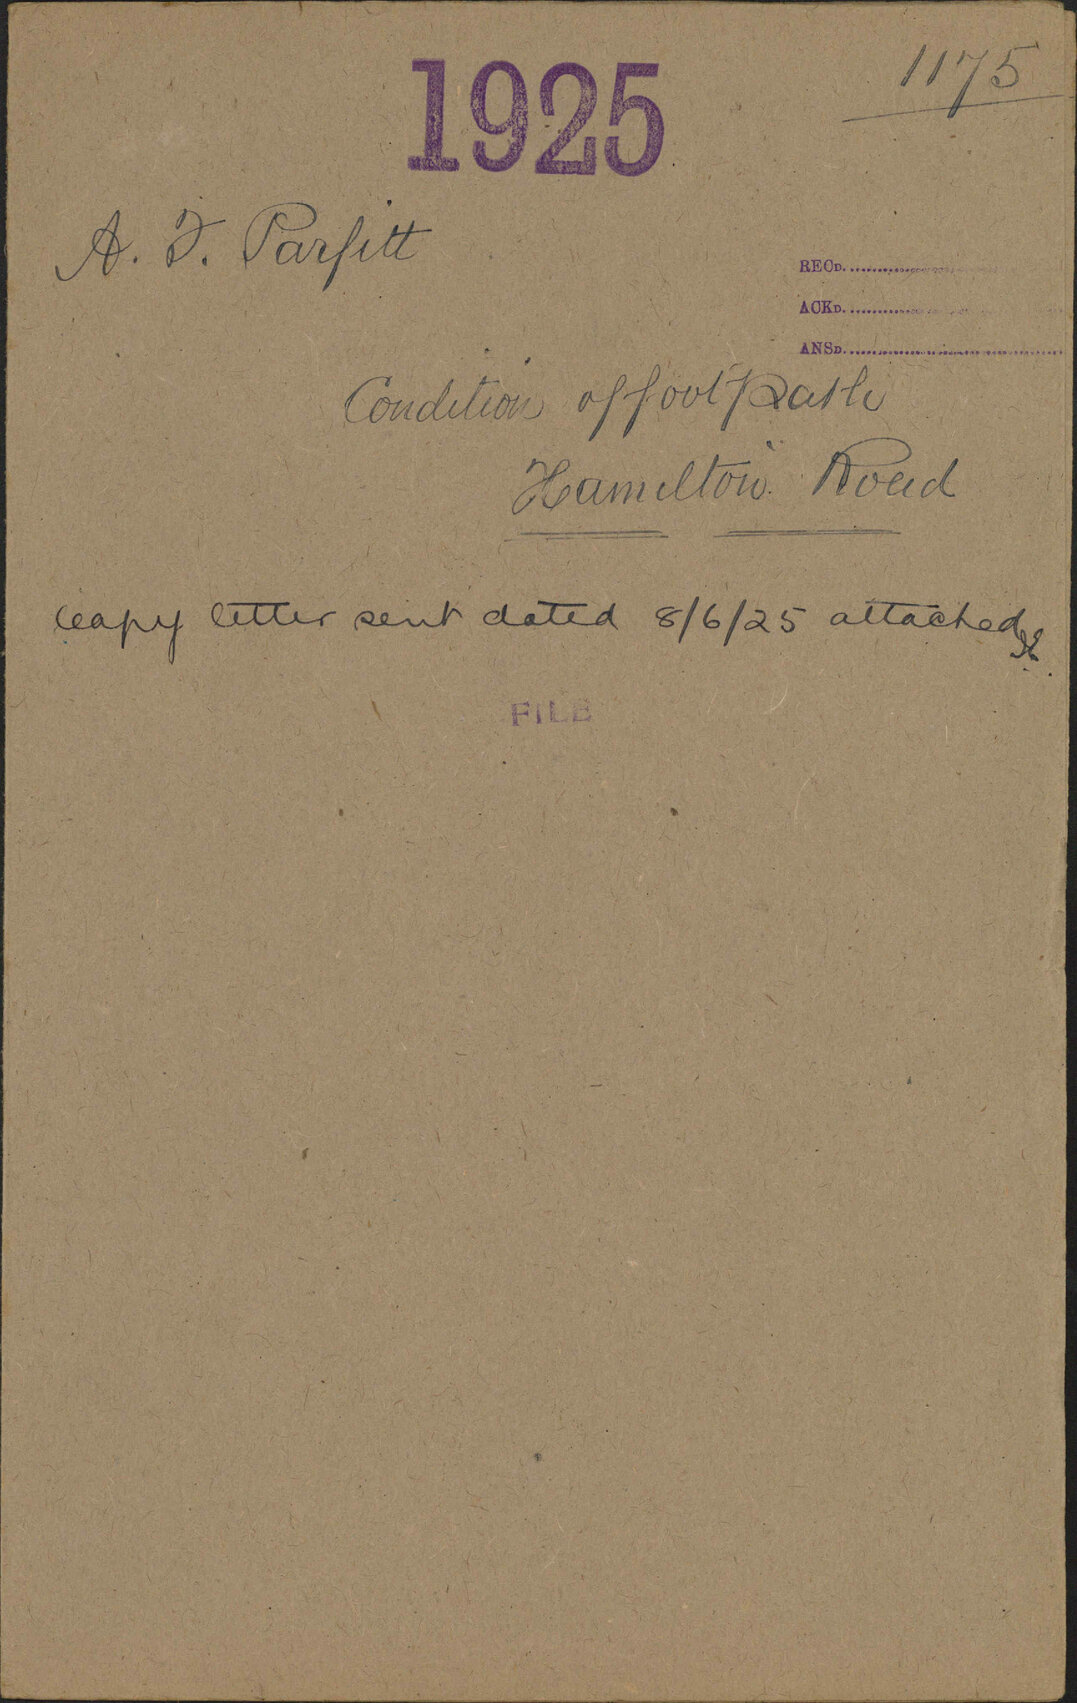 1925
1175
A. F. Parfitt
RECD.
ACKD.
ANSD.
Condition of footpath
Hamilton Road
Copy letter sent dated 8/6/25 attached
FILE